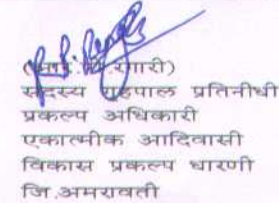 सदस्य प्रतिनीधी
प्रकल्प अधिकारी
एकात्मीक आदिवासी
विकास प्रकल्प धारणी
जि.अमरावती